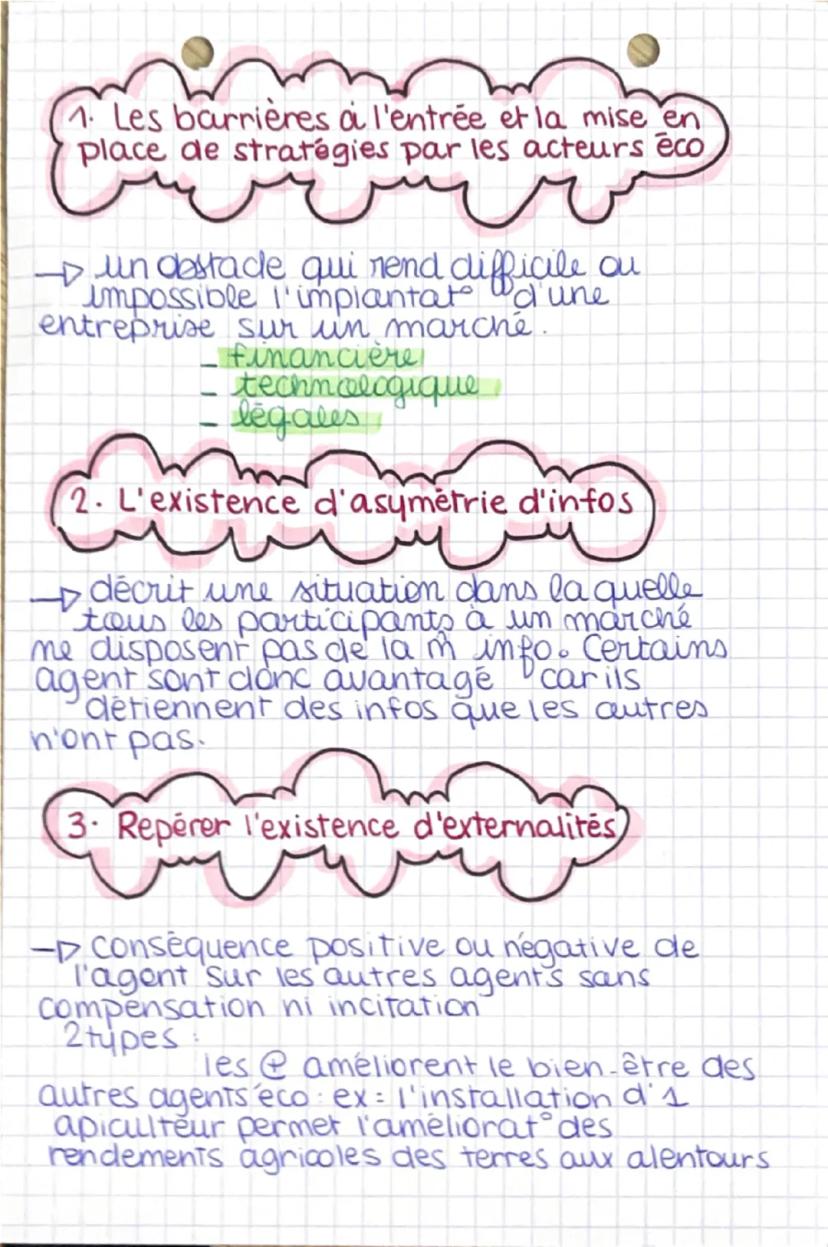 1. Les barrières à l'entrée et la mise en
place de stratégies par les acteurs éco
→ un obstacle qui rend difficile ou
impossible l'implantat° d'une
entreprise sur un marché.
- financière
- technologique
- légales
2. L'existence d'asymétrie d'infos
→ décrit une situation dans laquelle
tous les participants à un marché
ne disposent pas de la m̂ info. Certains
agent sont donc avantagé car ils
détiennent des infos que les autres
n'ont pas.
3. Repérer l'existence d'externalités
→ conséquence positive ou négative de
l'agent sur les autres agents sans
compensation ni incitation
2 types :
les ⊕ améliorent le bien-être des
autres agents éco : ex = l'installation d'1
apiculteur permet l'améliorat° des
rendements agricoles des terres aux alentours